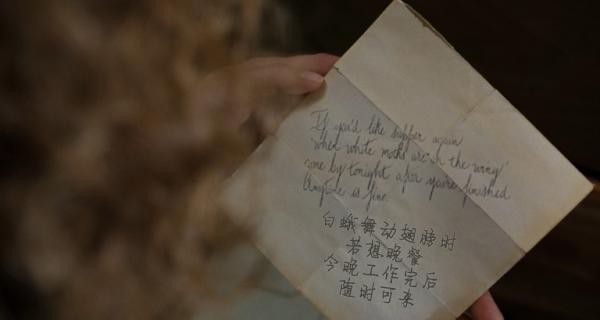 If you'd like supper again
when white moths are on the wing
come by tonight after you're finished
Anytime is fine.
白蛾舞动翅膀时
若想晚餐
今晚工作完后
随时可来